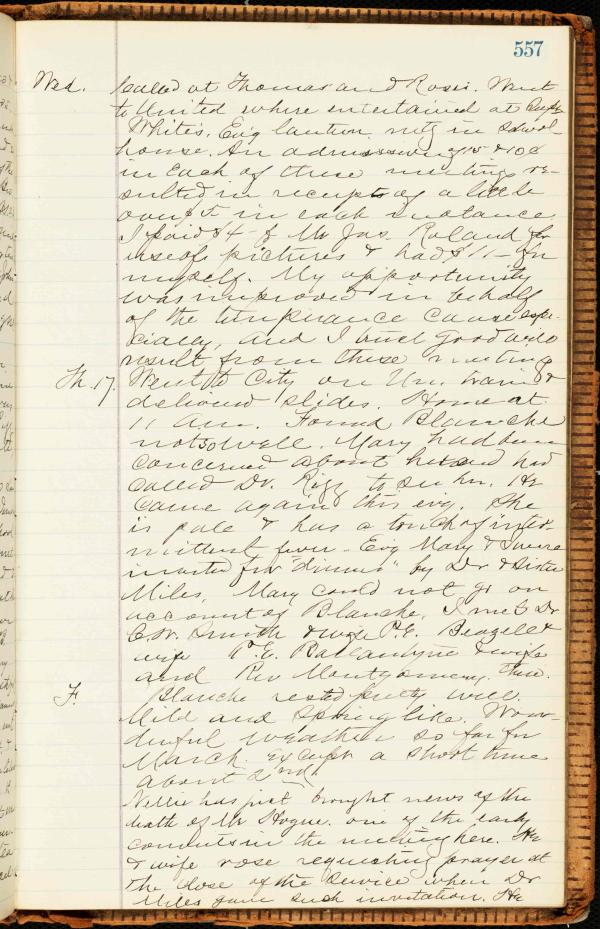 557
Wed. Called at Thomas and Rosss. Went
to United where entertained at
Whites. Evg lantern mtg in school
house. An admission of 15 & 10¢
in each of these meetings re-
sulted in receipts of a little
over $5 in each instance
I paid $4 - to Mr Jas. Roland for
use of pictures & had $11 - for
myself. My opportunity
was improved in behalf
of the temperance cause espe-
cially, and I trust good will
result from these meetings
Th. 17. Went to City on Un. train &
delivered slides. Home at
11 Am. Found Blanche
not so well. Mary had been
concerned about her and had
called Dr. to see her. He
came again this evg. She
is pale & has a touch of inter-
mittent fever - Evg Mary & I were
invited for "dinner" by Dr & Sister
Miles. Mary could not go on
account of Blanche. I met Dr
C.W. Smith & wife P.E. Beazell &
wife P.E. Ballantyne & wife
and Rev Montgomery.
F. Blanche rested pretty well.
Mild and Spring like. Won-
derful weather so far for
March. Except a short time
about 2nd.
Nellie has just brought news of the
death of Mr Hogue. one of the early
converts in the meeting here. He
& wife rose requesting prayer at
the close of the service when Dr
Miles gave such invitation. He